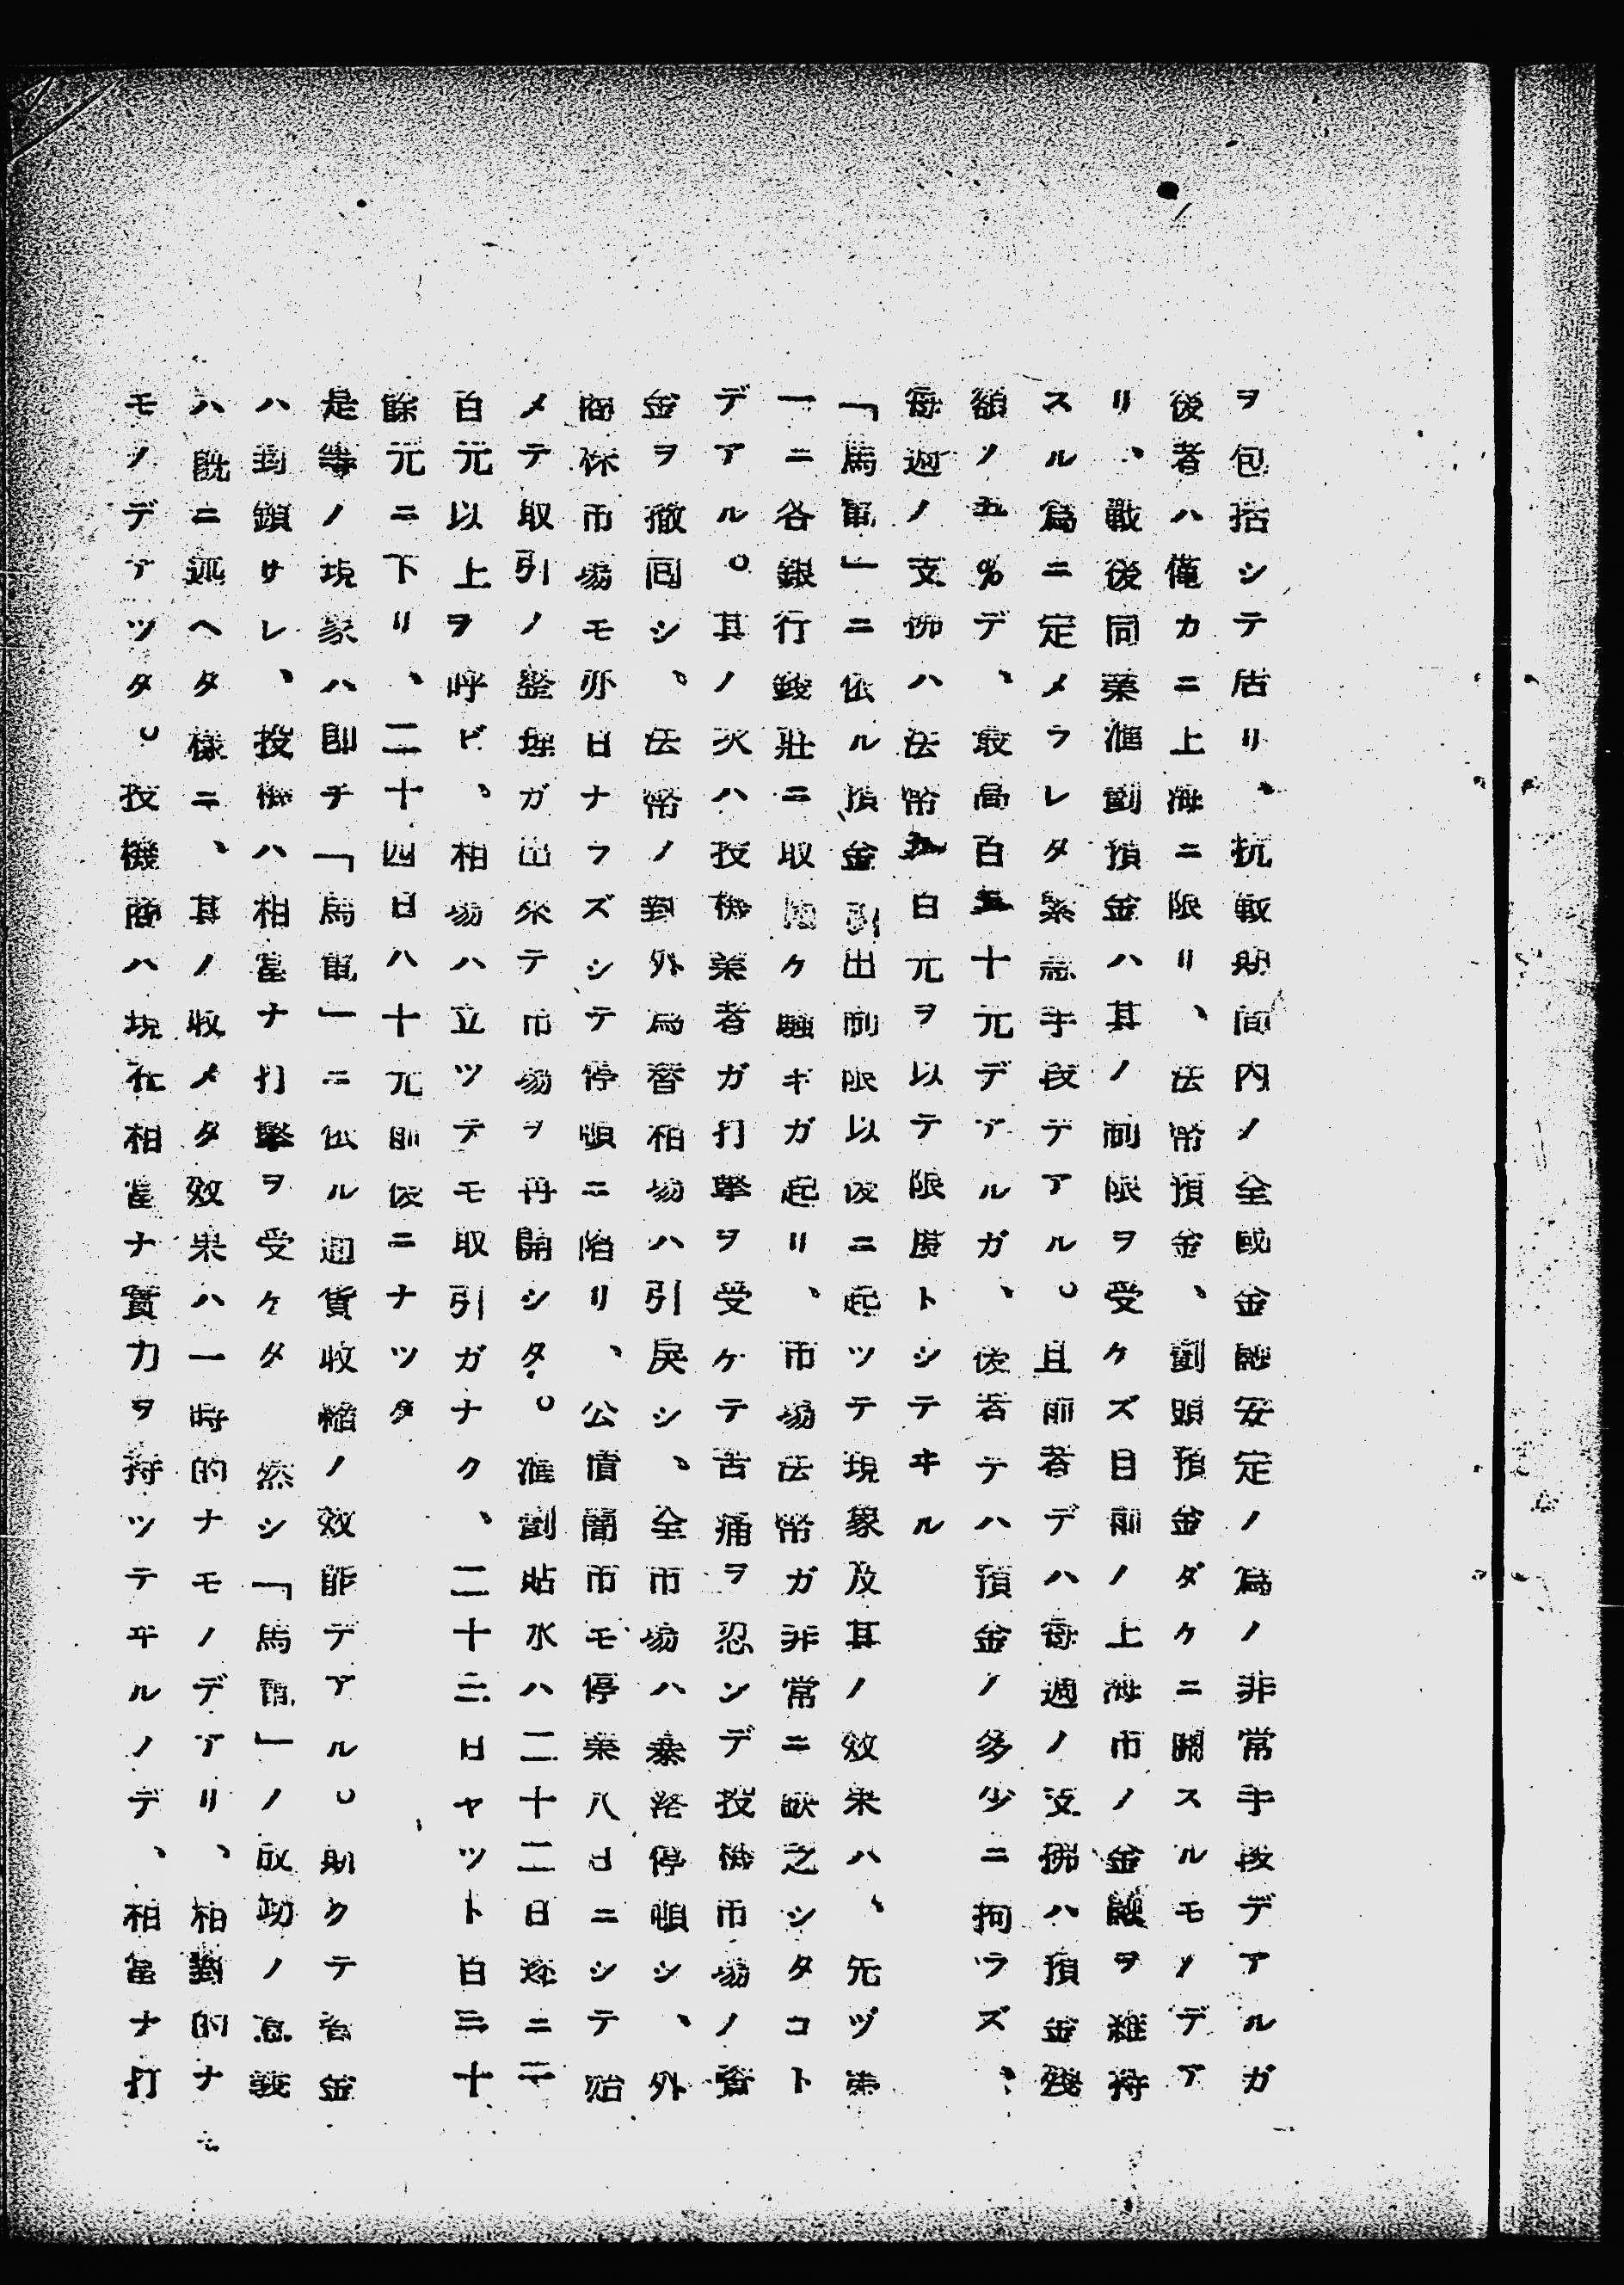 ヲ包括シテ居リ、抗戰期間内ノ全國金融安定ノ爲ノ非常手段デアルガ
後者ハ僅カニ上海ニ限リ、法幣預金、劃頭預金ダケニ關スルモノデア
リ、戰後同業滙劃預金ハ其ノ制限ヲ受ケズ目前ノ上海市ノ金融ヲ維持
スル爲ニ定メラレタ緊急手段デアル。且前者デハ毎週ノ支拂ハ預金殘
額ノ五%デ、最高百五十元デアルガ、後者デハ預金ノ多少ニ拘ラズ、
毎週ノ支拂ハ法幣五百元ヲ以テ限度トシテヰル
「馬電」ニ依ル預金引出制限以後ニ起ツテ現象及其ノ效果ハ、先ヅ第
一ニ各銀行錢莊ニ取付ケ騷ギガ起リ、市場法幣ガ非常ニ缺乏シタコト
デアル。其ノ次ハ投機業者ガ打擊ヲ受ケテ苦痛ヲ忍ンデ投機市場ノ資
金ヲ撤囘シ、法幣ノ對外爲替相場ハ引戾シ、全市場ハ暴落停頓シ、外
商株市場モ亦日ナラズシテ停頓ニ陷リ、公債闇市モ停業八日ニシテ始
メテ取引ノ整理ガ出來テ市場ヲ再開シタ。滙劃貼水ハ二十二日遂ニ二
百元以上ヲ呼ビ、相場ハ立ツテモ取引ガナク、二十三日ヤツト百三十
餘元ニ下リ、二十四日ハ十元前後ニナツタ
是等ノ現象ハ卽チ「馬電」ニ依ル通貨收縮ノ效能デアル。助クテ省金
ハ封鎖サレ、投機ハ相當ナ打擊ヲ受ケタ　然シ「馬電」ノ成功ノ意義
ハ既ニ述ヘタ樣ニ、其ノ收メタ效果ハ一時的ナモノデアリ、相對的ナ
モノデアツタ。投機商ハ現在相當ナ實力ヲ持ツテヰルノデ、相當ナ打